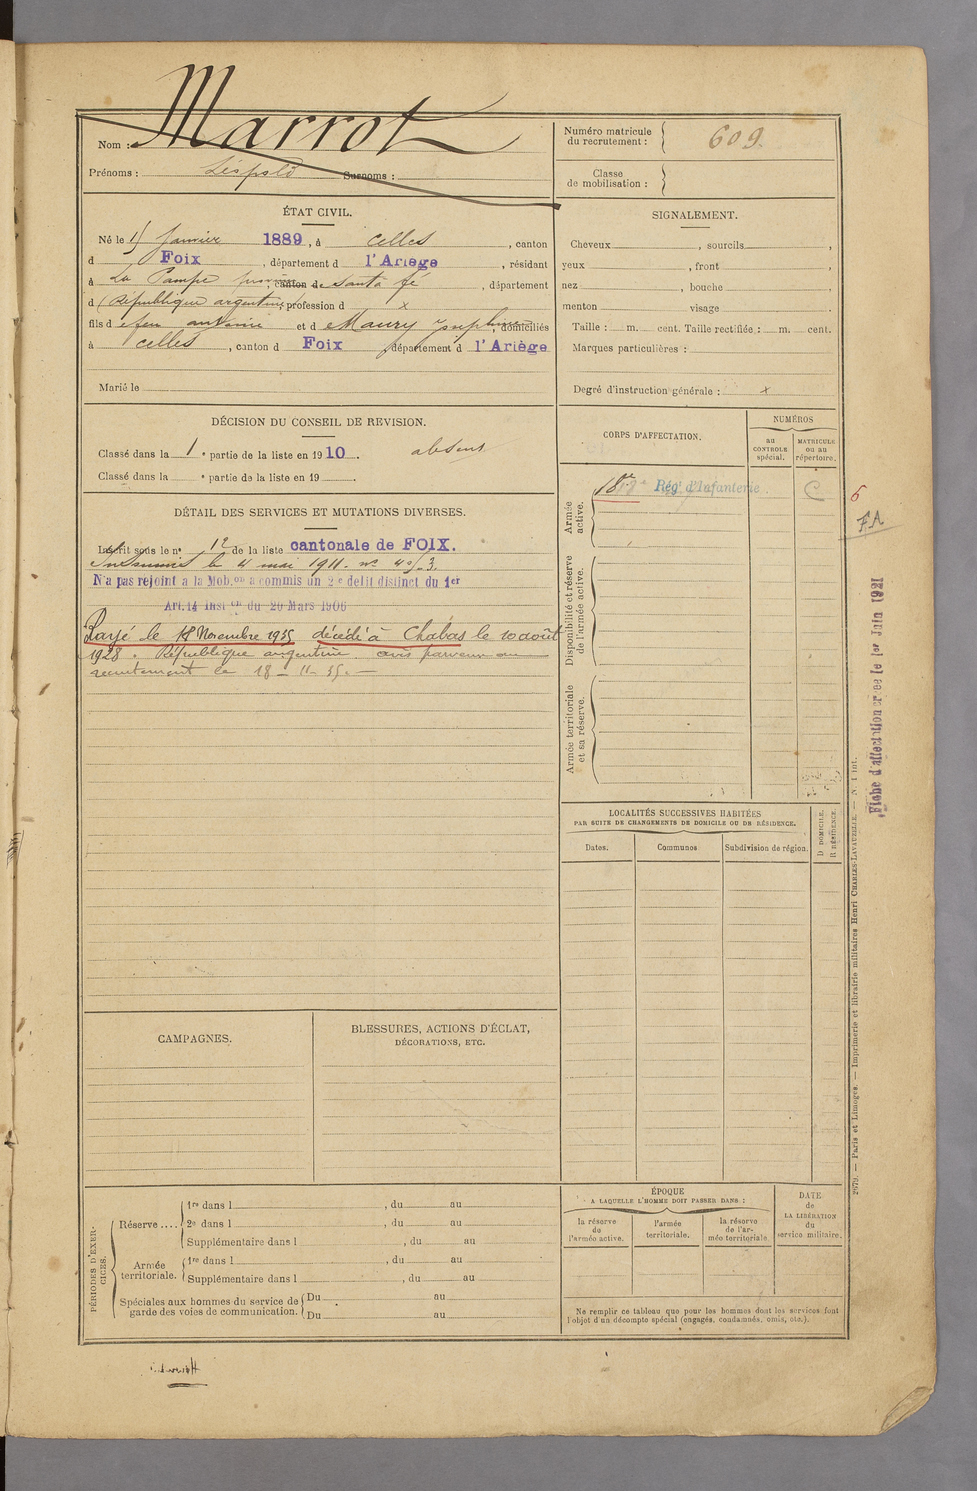 Nom : Marrot
Prénoms : Léopold Surnoms :
Numéro matricule du recrutement : 609.
Classe de mobilisation :
ÉTAT CIVIL.
Né le 15 Janvier 1889, à Celles, canton
d Foix, département d l'Ariège, résidant
à La Pampe canton de Santa fé, département
d (République argentine profession d x
fils d feu antoine et d Maury Josephine, domiciliés
à Celles, canton d Foix, département d l'Ariège
Marié le
SIGNALEMENT.
Cheveux , sourcils ,
yeux , front ,
nez , bouche ,
menton visage
Taille : m. cent. Taille rectifiée : m. cent.
Marques particulières :
Degré d'instruction générale : x
DÉCISION DU CONSEIL DE REVISION.
Classé dans la 1e partie de la liste en 1910. absent
Classé dans la e partie de la liste en 19 .
DÉTAIL DES SERVICES ET MUTATIONS DIVERSES.
Inscrit sous le n° 12 de la liste cantonale de FOIX.
Insoumis le 4 mai 1911. n°
N'a pas rejoint a la Mob.on a commis un 2e delit distinct du 1er
Art.14 Inst.on du 20 Mars 1906
Rayé le 18 Novembre 1935 décédé à Chabas le 10 août
1928. République argentine. avis parvenu au
recrutement le 18-11-35.
CORPS D'AFFECTATION.
NUMÉROS
au CONTROLE spécial.
MATRICULE ou au répertoire.
Armée active.
18e Rég' d'Infanterie C
6
FA
Disponibilité et réserve de l'armée active.
Armée territoriale et sa réserve.
Fiche d'affectation créée le 1er Juin 1921
LOCALITÉS SUCCESSIVES HABITÉES
PAR SUITE DE CHANGEMENTS DE DOMICILE OU DE RÉSIDENCE.
Dates.
Communes
Subdivision de région.
D DOMICILE.
R RÉSIDENCE.
CAMPAGNES.
BLESSURES, ACTIONS D'ÉCLAT,
DÉCORATIONS, ETC.
PÉRIODES D'EXERCICES.
Réserve ....
1re dans l , du au
2e dans l , du au
Supplémentaire dans l , du au
Armée territoriale.
1re dans l , du au
Supplémentaire dans l , du au
Spéciales aux hommes du service de garde des voies de communication.
Du au
Du au
ÉPOQUE
A LAQUELLE L'HOMME DOIT PASSER DANS :
la réserve de l'armée active.
l'armée territoriale.
la réserve de l'armée territoriale.
DATE de LA LIBÉRATION du service militaire.
Ne remplir ce tableau que pour les hommes dont les services font
l'objet d'un décompte spécial (engagés, condamnés, omis, etc.).
2679. — Paris et Limoges. — Imprimerie et librairie militaires Henri CHARLES-LAVAUZELLE. — N. 1 int.